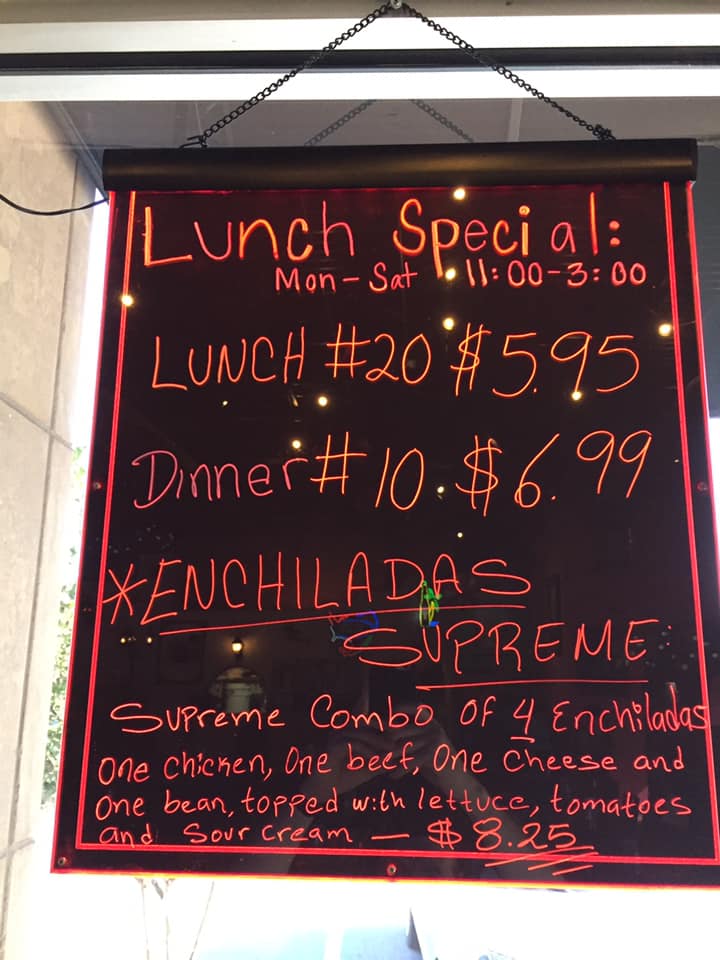 Lunch Special:
Mon - Sat 11:00-3:00
LUNCH #20 $5.95
Dinner #10. $6.99
*ENCHILADAS
SUPREME:
Supreme Combo OF 4 Enchiladas
One chicken, One beef, One Cheese and
One bean, topped with lettuce, tomatoes
and Sour Cream — $8.25